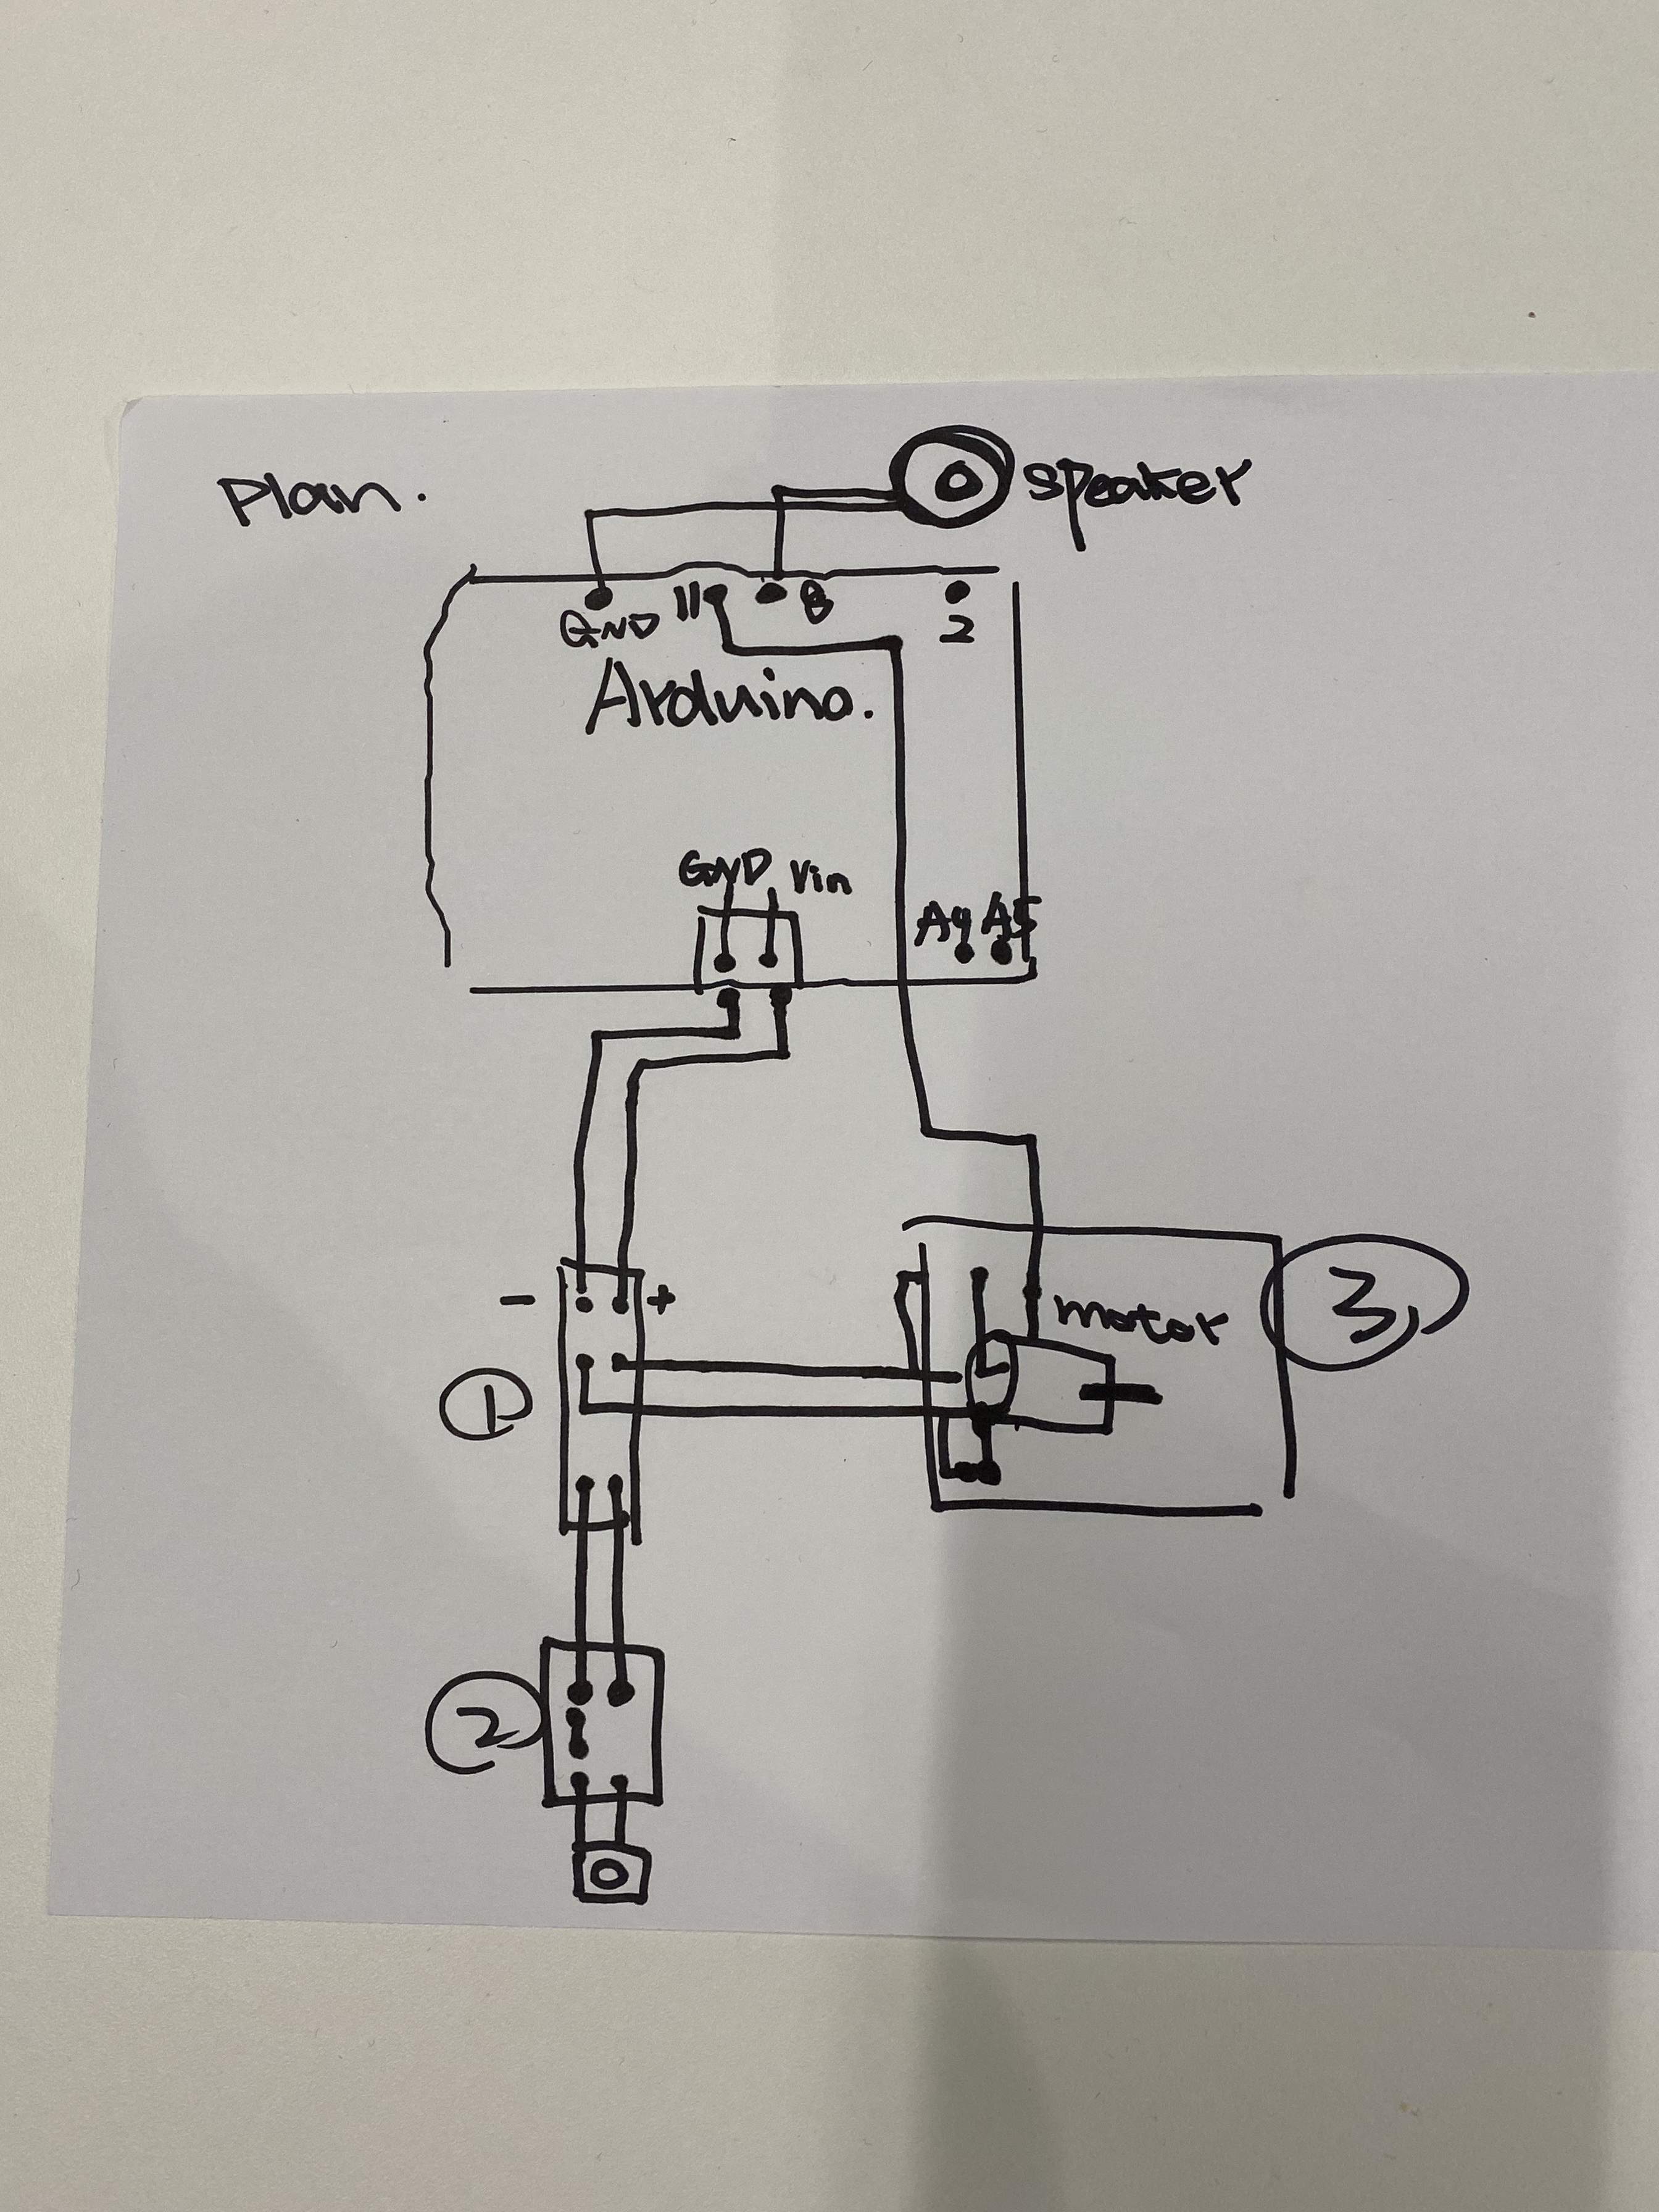 Plan.
speaker
GND 11 8 2
Arduino.
GND Vin
A4 A5
- +
motor
3
1
2